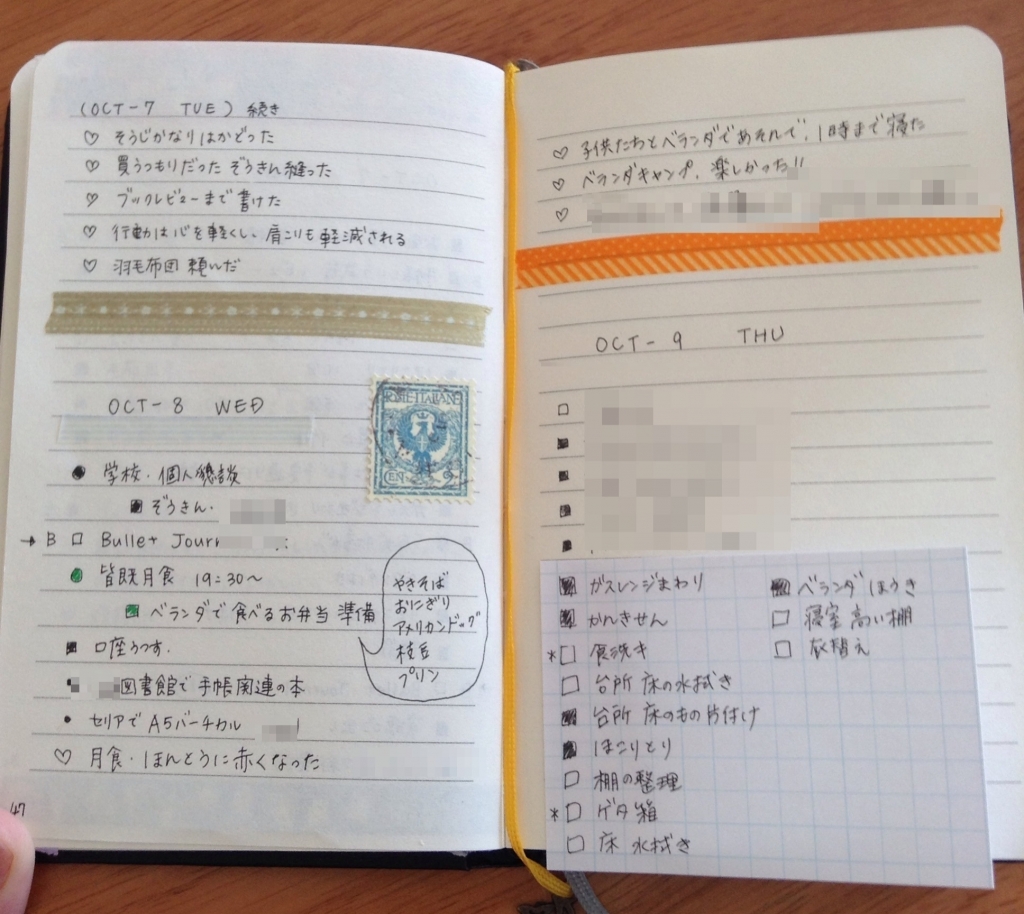 (OCT-7 TUE) 続き
♡ そうじかなりはかどった
♡ 買うつもりだった ぞうきん縫った
♡ ブックレビューまで書けた
♡ 行動は心を軽くし、肩こりも軽減される
♡ 羽毛布団 頼んだ
OCT-8 WED
POSTE ITALIANE
CEN 2
● 学校・個人懇談
■ ぞうきん.
→ B □ Bullet Journ
● 皆既月食 19:30〜
■ ベランダで食べるお弁当 準備
やきそば
おにぎり
アメリカンドッグ
枝豆
プリン
■ 口座うつす.
図書館で手帳関連の本
• セリアでA5バーチカル
♡ 月食・ほんとうに赤くなった
47
♡ 子供たちとベランダであそんで、1時まで寝た
♡ ベランダキャンプ、楽しかった!!
♡
OCT-9 THU
□
■
■
■
■
■ ガスレンジまわり
■ かんきせん
*□ 食洗き
□ 台所 床の水拭き
■ 台所 床のもの片付け
■ ほこりとり
□ 棚の整理
*□ ゲタ箱
□ 床 水拭き
■ ベランダ ほうき
□ 寝室 高い棚
□ 衣替え